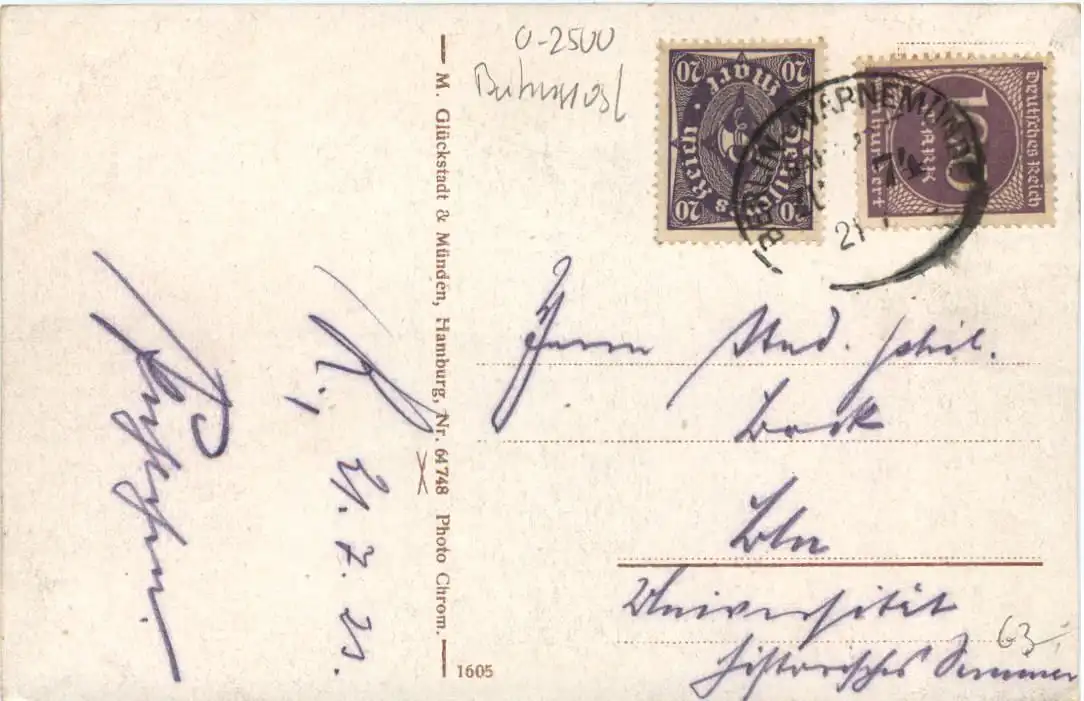 0-2500
M. Glückstadt & Münden, Hamburg, Nr. 64748 Photo Chrom.
1605
20 20
Mark
Deutsches Reich
20 20
Deutsches Reich
100
MARK
hundert
BERLIN-WARNEMÜNDE
21
Herrn Stud. phil.
Bock
Bln
Universität
Historisches Seminar
21. 7. 23.
63.-